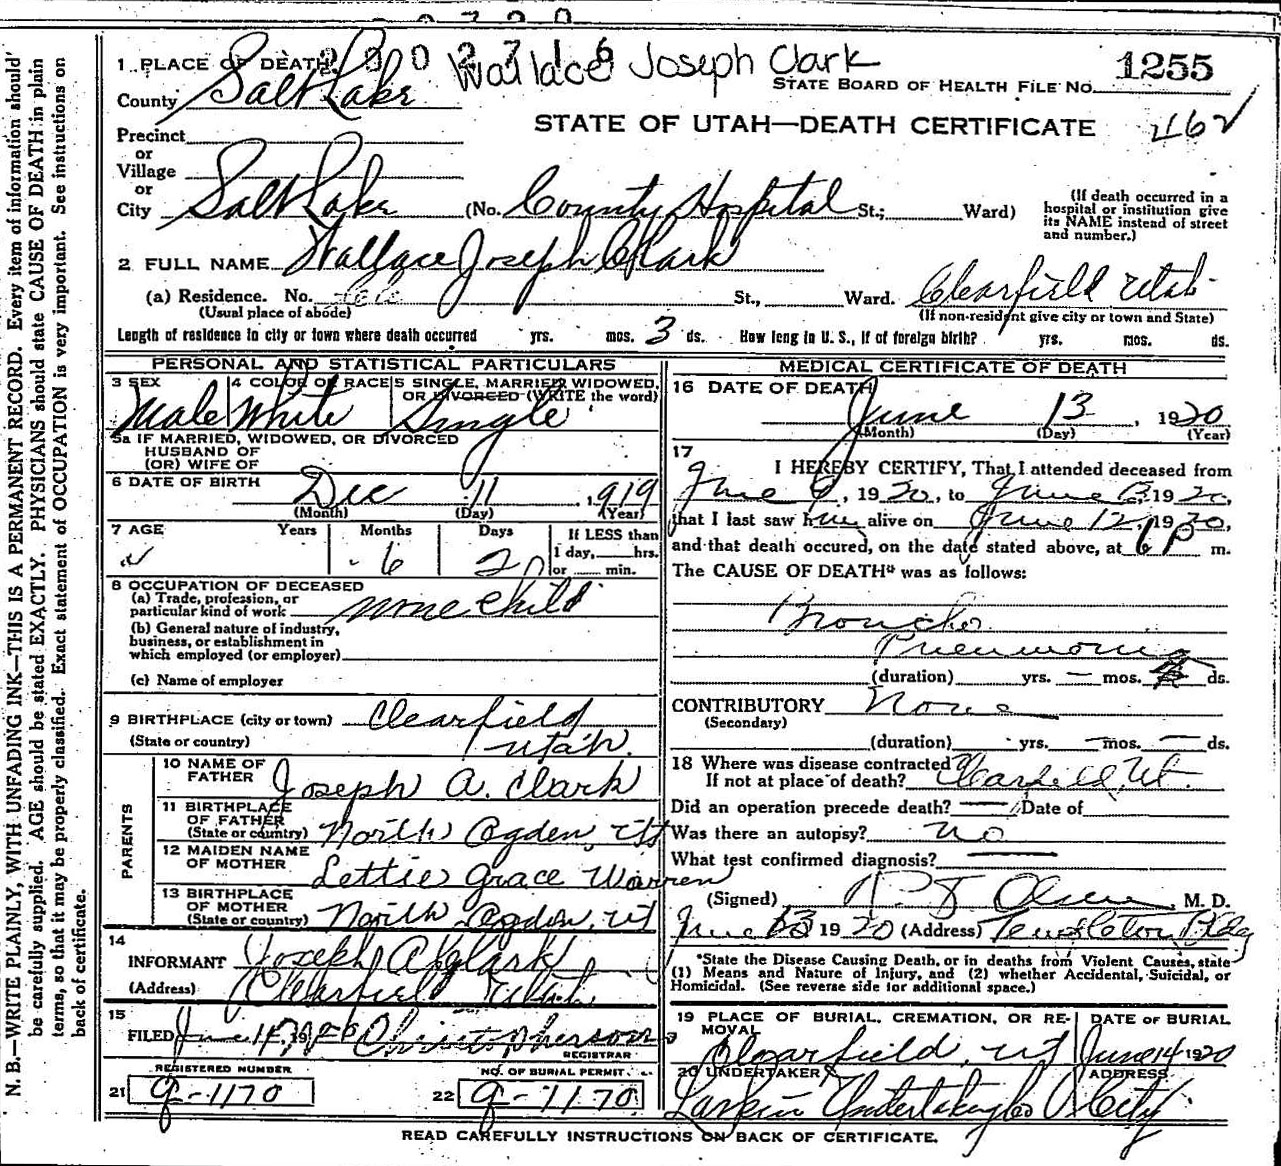 2300 2716 Wallace Joseph Clark
1 PLACE OF DEATH
STATE BOARD OF HEALTH FILE No. 1255
County Salt Lake
STATE OF UTAH—DEATH CERTIFICATE 462
Precinct
or
Village
or
City Salt Lake (No. County Hospital St.; Ward)
(If death occurred in a hospital or institution give its NAME instead of street and number.)
2 FULL NAME Wallace Joseph Clark
(a) Residence. No. St., Ward. Clearfield Utah
(Usual place of abode) (If non-resident give city or town and State)
Length of residence in city or town where death occurred yrs. mos. 3 ds. How long in U. S., if of foreign birth? yrs. mos. ds.
PERSONAL AND STATISTICAL PARTICULARS
3 SEX 4 COLOR OR RACE 5 SINGLE, MARRIED, WIDOWED, OR DIVORCED (WRITE the word)
Male White Single
5a IF MARRIED, WIDOWED, OR DIVORCED
HUSBAND OF
(OR) WIFE OF
6 DATE OF BIRTH Dec 11, 1919
(Month) (Day) (Year)
7 AGE Years Months Days If LESS than
1 day, hrs.
or min.
6 2
8 OCCUPATION OF DECEASED
(a) Trade, profession, or
particular kind of work none child
(b) General nature of industry,
business, or establishment in
which employed (or employer)
(c) Name of employer
9 BIRTHPLACE (city or town) Clearfield
(State or country) Utah
PARENTS
10 NAME OF
FATHER Joseph A. Clark
11 BIRTHPLACE
OF FATHER
(State or country) North Ogden, Ut
12 MAIDEN NAME
OF MOTHER Lettie Grace Warren
13 BIRTHPLACE
OF MOTHER
(State or country) North Ogden, Ut
14
INFORMANT Joseph A Clark
(Address) Clearfield Utah
15
FILED June 14, 1920 Christopherson
REGISTRAR
REGISTERED NUMBER NO. OF BURIAL PERMIT
21 9-1170 22 9-1170
MEDICAL CERTIFICATE OF DEATH
16 DATE OF DEATH
June 13, 1920
(Month) (Day) (Year)
17
I HEREBY CERTIFY, That I attended deceased from
June, 1920, to June 13, 1920,
that I last saw him alive on June 12, 1920,
and that death occured, on the date stated above, at 6 P m.
The CAUSE OF DEATH* was as follows:
Broncho
Pneumonia
(duration) yrs. — mos. ds.
CONTRIBUTORY None
(Secondary)
(duration) yrs. — mos. — ds.
18 Where was disease contracted
If not at place of death? Clearfield, Ut.
Did an operation precede death? — Date of
Was there an autopsy? no
What test confirmed diagnosis? —
(Signed) P. J. Olsen, M. D.
June 13 1920 (Address) Templeton Bldg
*State the Disease Causing Death, or in deaths from Violent Causes, state
(1) Means and Nature of Injury, and (2) whether Accidental, Suicidal, or
Homicidal. (See reverse side for additional space.)
19 PLACE OF BURIAL, CREMATION, OR RE-
MOVAL DATE OF BURIAL
Clearfield, Ut June 14 1920
20 UNDERTAKER ADDRESS
Larkin Undertaking Co City
READ CAREFULLY INSTRUCTIONS ON BACK OF CERTIFICATE.
N. B.—WRITE PLAINLY, WITH UNFADING INK—THIS IS A PERMANENT RECORD. Every item of information should
be carefully supplied. AGE should be stated EXACTLY. PHYSICIANS should state CAUSE OF DEATH in plain
terms, so that it may be properly classified. Exact statement of OCCUPATION is very important. See instructions on
back of certificate.